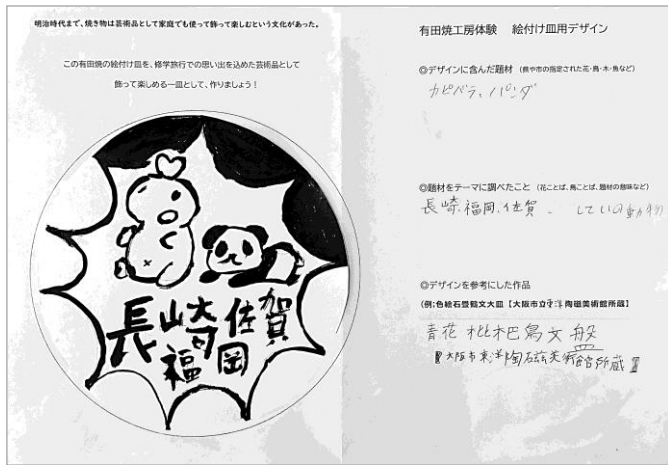 明治時代まで、焼き物は芸術品として家庭でも使って飾って楽しむという文化があった。
この有田焼の絵付け皿を、修学旅行での思い出を込めた芸術品として
飾って楽しめる一皿として、作りましょう！
長崎佐賀
福岡
有田焼工房体験　絵付け皿用デザイン
◎デザインに含んだ題材（県や市の指定された花・鳥・木・魚など）
カピバラ、パンダ
◎題材をテーマに調べたこと（花ことば、鳥ことば、題材の意味など）
長崎、福岡、佐賀、していの動物
◎デザインを参考にした作品
（例：色絵石畳鶴文大皿【大阪市立東洋陶磁美術館所蔵】
青花枇杷鳥文盤
【大阪市東洋陶磁美術館所蔵】